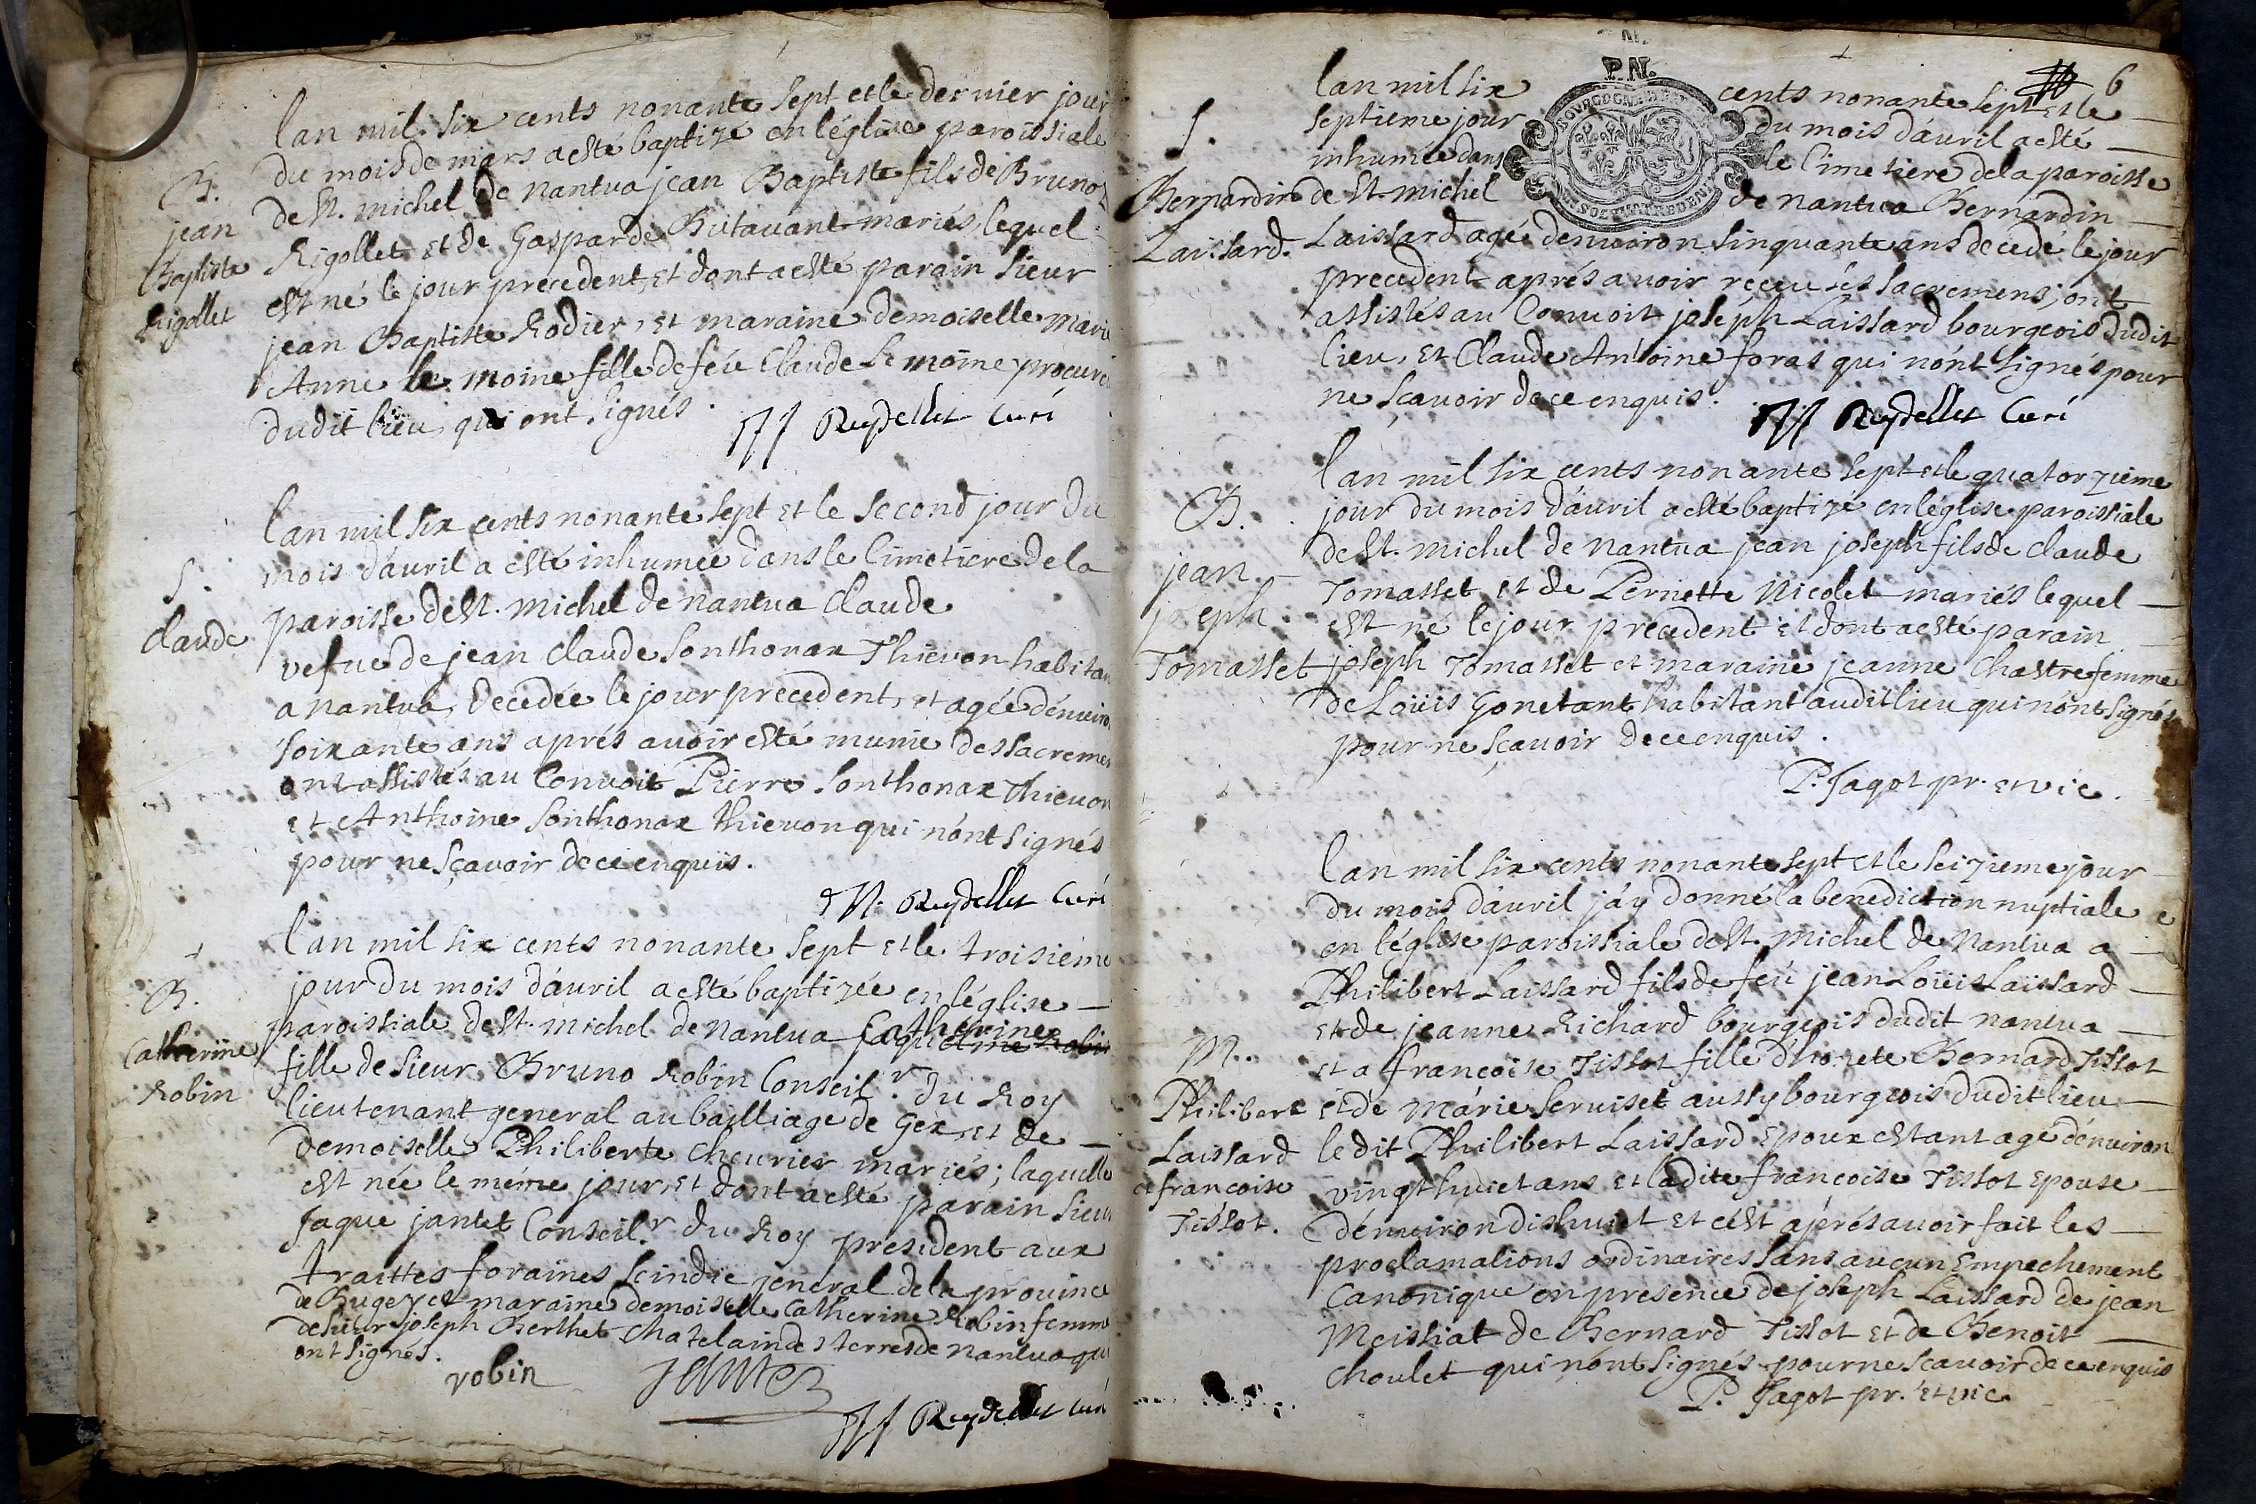 lan mil six cents nonante sept et le dernier jour
du mois de mars a esté baptizé en léglise paroissiale
B.
de St. michel de nantua jean Baptiste fils de Bruno
jean
Rigollet et de Gasparde Butavant mariés, lequel
Baptiste
est né le jour precedent, et dont a esté parain sieur
Rigollet
jean Baptiste Rodier, et maraine demoiselle Marie
Anne le moine fille de feu Claude Le moine procure
dudit lieu qui ont signés.
Reydellet Curé
lan mil six cents nonante sept et le second jour du
mois dávril a esté inhumée dans le Cimetiere de la
S.
paroisse de St. Michel de nantua Claude
Claude
vefue de jean Claude Sonthonax Thieuon habitan
a nantua, decedée le jour precedent, et agée dénuiron
soixante ans aprés auoir esté munie des sacremen
ont assistés au Conuoit Pierre Sonthonax Thieuon
et Anthoine Sonthonax thieuon qui nónt signés
pour ne sçavoir de ce enquis.
Reydellet Curé
lan mil six cents nonante sept et le troisiéme
jour du mois dáuril a esté baptizée en léglise
B.
paroissiale de St. Michel de nantua Catherine
Catherine
fille de sieur Bruno Robin Conseil.r du Roy
Robin
lieutenant general au bailliage de Gex, et de
demoiselle Philiberte Cheurier mariés; laquelle
est née le méme jour, et dont a esté parain sieur
Jaque jantet Conseil.r du Roy president aux
traittes foraines scindic general de la prouince
de Bugey et maraine demoiselle Catherine Robin femme
de sieur joseph Berthet Chatelain des terres de nantua qui
ont signés.
robin
Jantet
Reydellet Curé
P.N.
6
lan mil six cents nonante sept et le
septieme jour du mois dáuril a esté
S.
inhumée dans le Cimetiere de la paroisse
Bernardin de St. Michel de nantua Bernardin
Laissard. Laissard agée denuiron sinquante ans decedé le jour
precedent aprés auoir reçeu ses sacremens; ont
assistés au Conuoit joséph Laissard bourgeois dudit
lieu, et Claude Antoine foras qui nónt signés pour
ne sçavoir de ce enquis.
Reydellet Curé
lan mil six cents nonante sept et le quatorzieme
B.
jour du mois dáuril a esté baptizé en léglise paroissiale
de St. Michel de nantua jean joseph fils de Claude
jean
Tomasset et de Pernette Nicolet mariés lequel
joseph
est né le jour precedent et dont a esté parain
Tomasset joseph Tomasset et maraine jeanne Chastre femme
de Loüis Gonetant habitant audit lieu qui nónt signés
pour ne sçavoir de ce enquis.
P. Jagot pr. et vic.
lan mil six cents nonante sept et le seizieme jour
du mois dáuril jáy donné la benediction nuptiale
en léglise paroissiale de St. Michel de Nantua a
Philibert Laissard fils de feu jean Loüis Laissard
et de jeanne Richard bourgeois dudit nantua
M.
et a françoise Tissot fille dhonete Bernard Tissot
Philibert et de Márie Seruiset aussy bourgeois dudit lieu
Laissard le dit Philibert Laissard epoux estant agé dénuiron
et francoise vingt huict ans et ladite françoise Tissot epouse
Tissot. dénuiron dishuict et cést aprés auoir fait les
proclamations ordinaires sans aucun Empechement
Canonique en presence de joseph Laissard de jean
Meissiat de Bernard Tissot et de Benoit
Choulet qui nónt signés pour ne sçavoir de ce enquis
P. Jagot pr. et vic